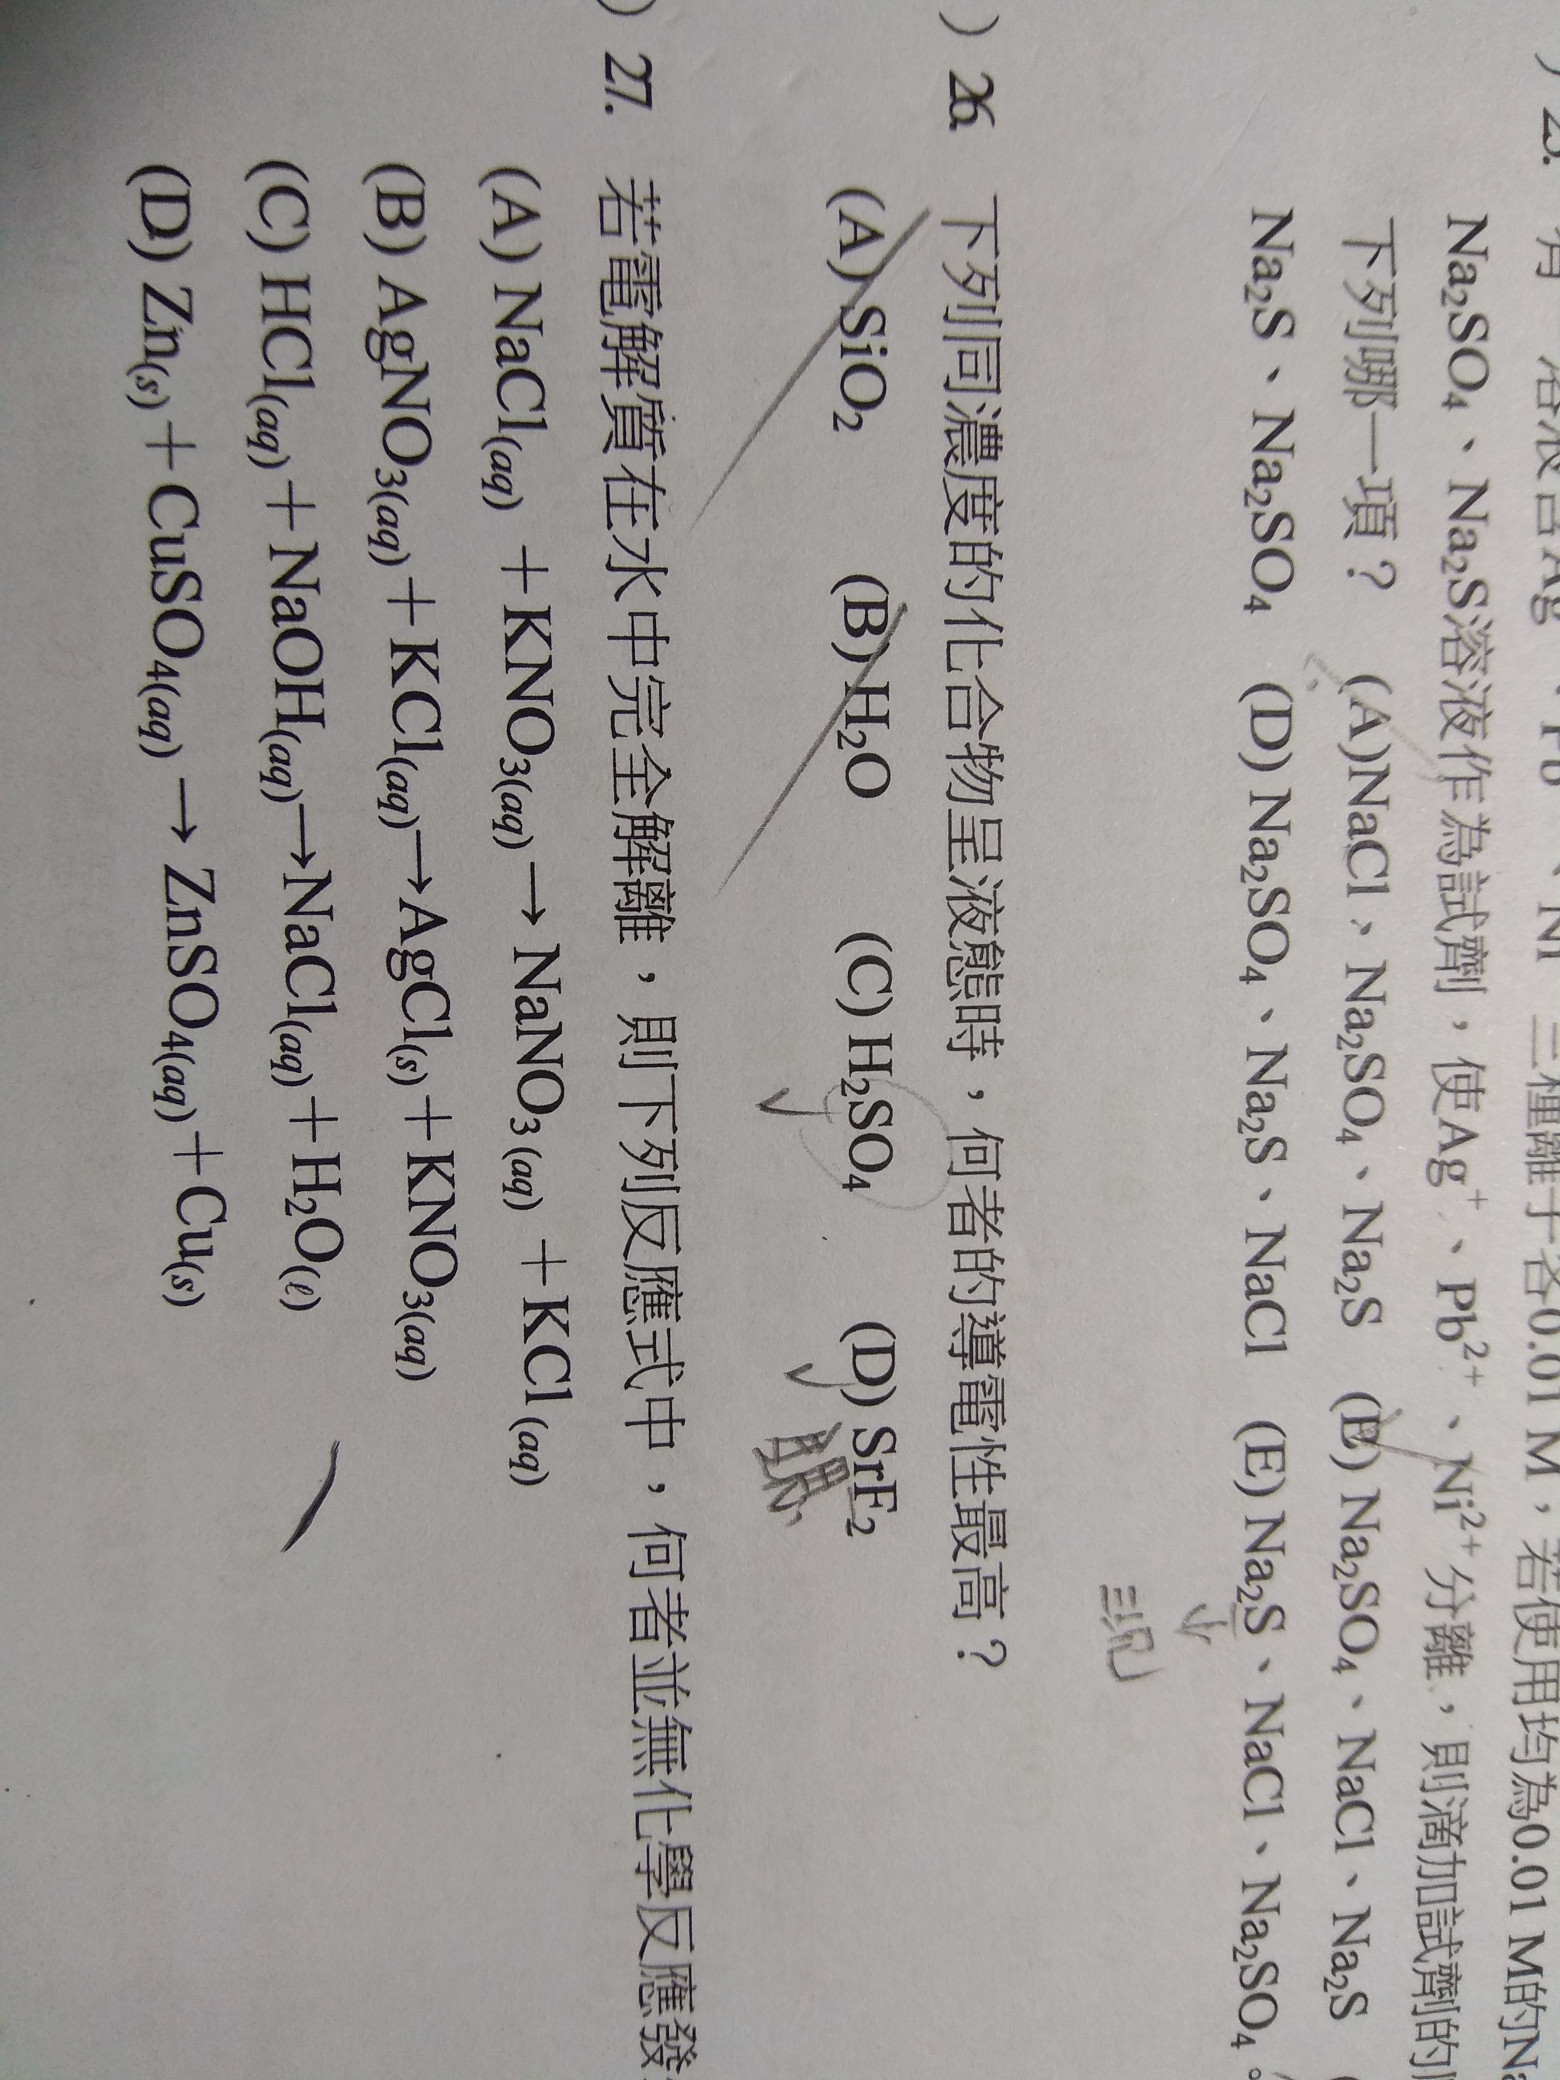 ) 25. 有一溶液含Ag⁺、Pb²⁺、Ni²⁺三種離子各0.01 M，若使用均為0.01 M的Na
Na₂SO₄、Na₂S溶液作為試劑，使Ag⁺、Pb²⁺、Ni²⁺分離，則滴加試劑的
下列哪一項？ (A)NaCl、Na₂SO₄、Na₂S (B) Na₂SO₄、NaCl、Na₂S (
Na₂S、Na₂SO₄ (D) Na₂SO₄、Na₂S、NaCl (E) Na₂S、NaCl、Na₂SO₄。
) 26. 下列同濃度的化合物呈液態時，何者的導電性最高？
(A) SiO₂ (B) H₂O (C) H₂SO₄ (D) SrF₂
) 27. 若電解質在水中完全解離，則下列反應式中，何者並無化學反應發
(A) NaCl(aq) + KNO₃(aq) → NaNO₃(aq) + KCl(aq)
(B) AgNO₃(aq) + KCl(aq) → AgCl(s) + KNO₃(aq)
(C) HCl(aq) + NaOH(aq) → NaCl(aq) + H₂O(ℓ)
(D) Zn(s) + CuSO₄(aq) → ZnSO₄(aq) + Cu(s)